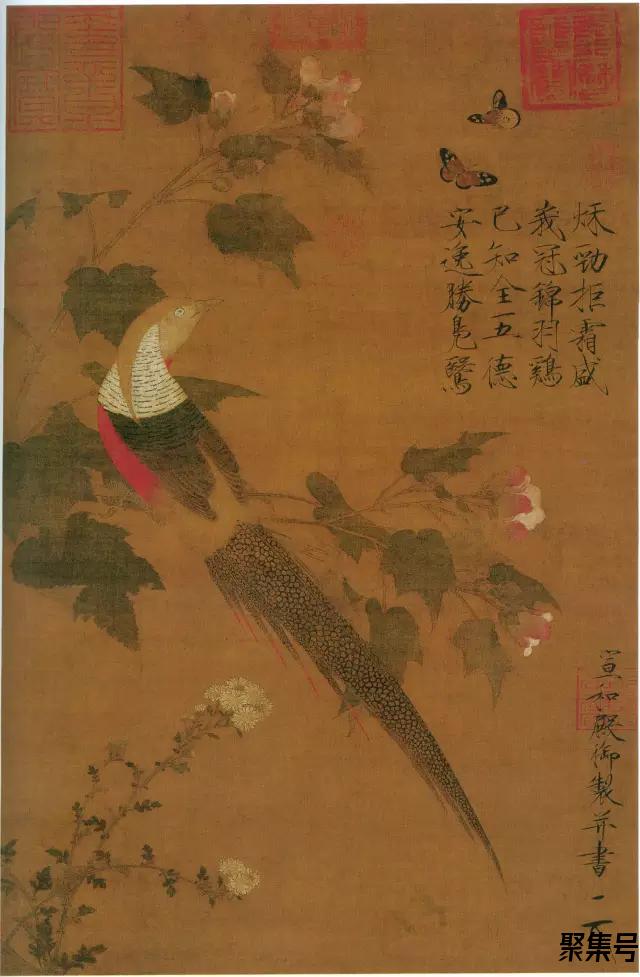 秋勁拒霜盛
峩冠錦羽鷄
已知全五德
安逸勝鳧鷖
宣和殿御製并書
聚集号